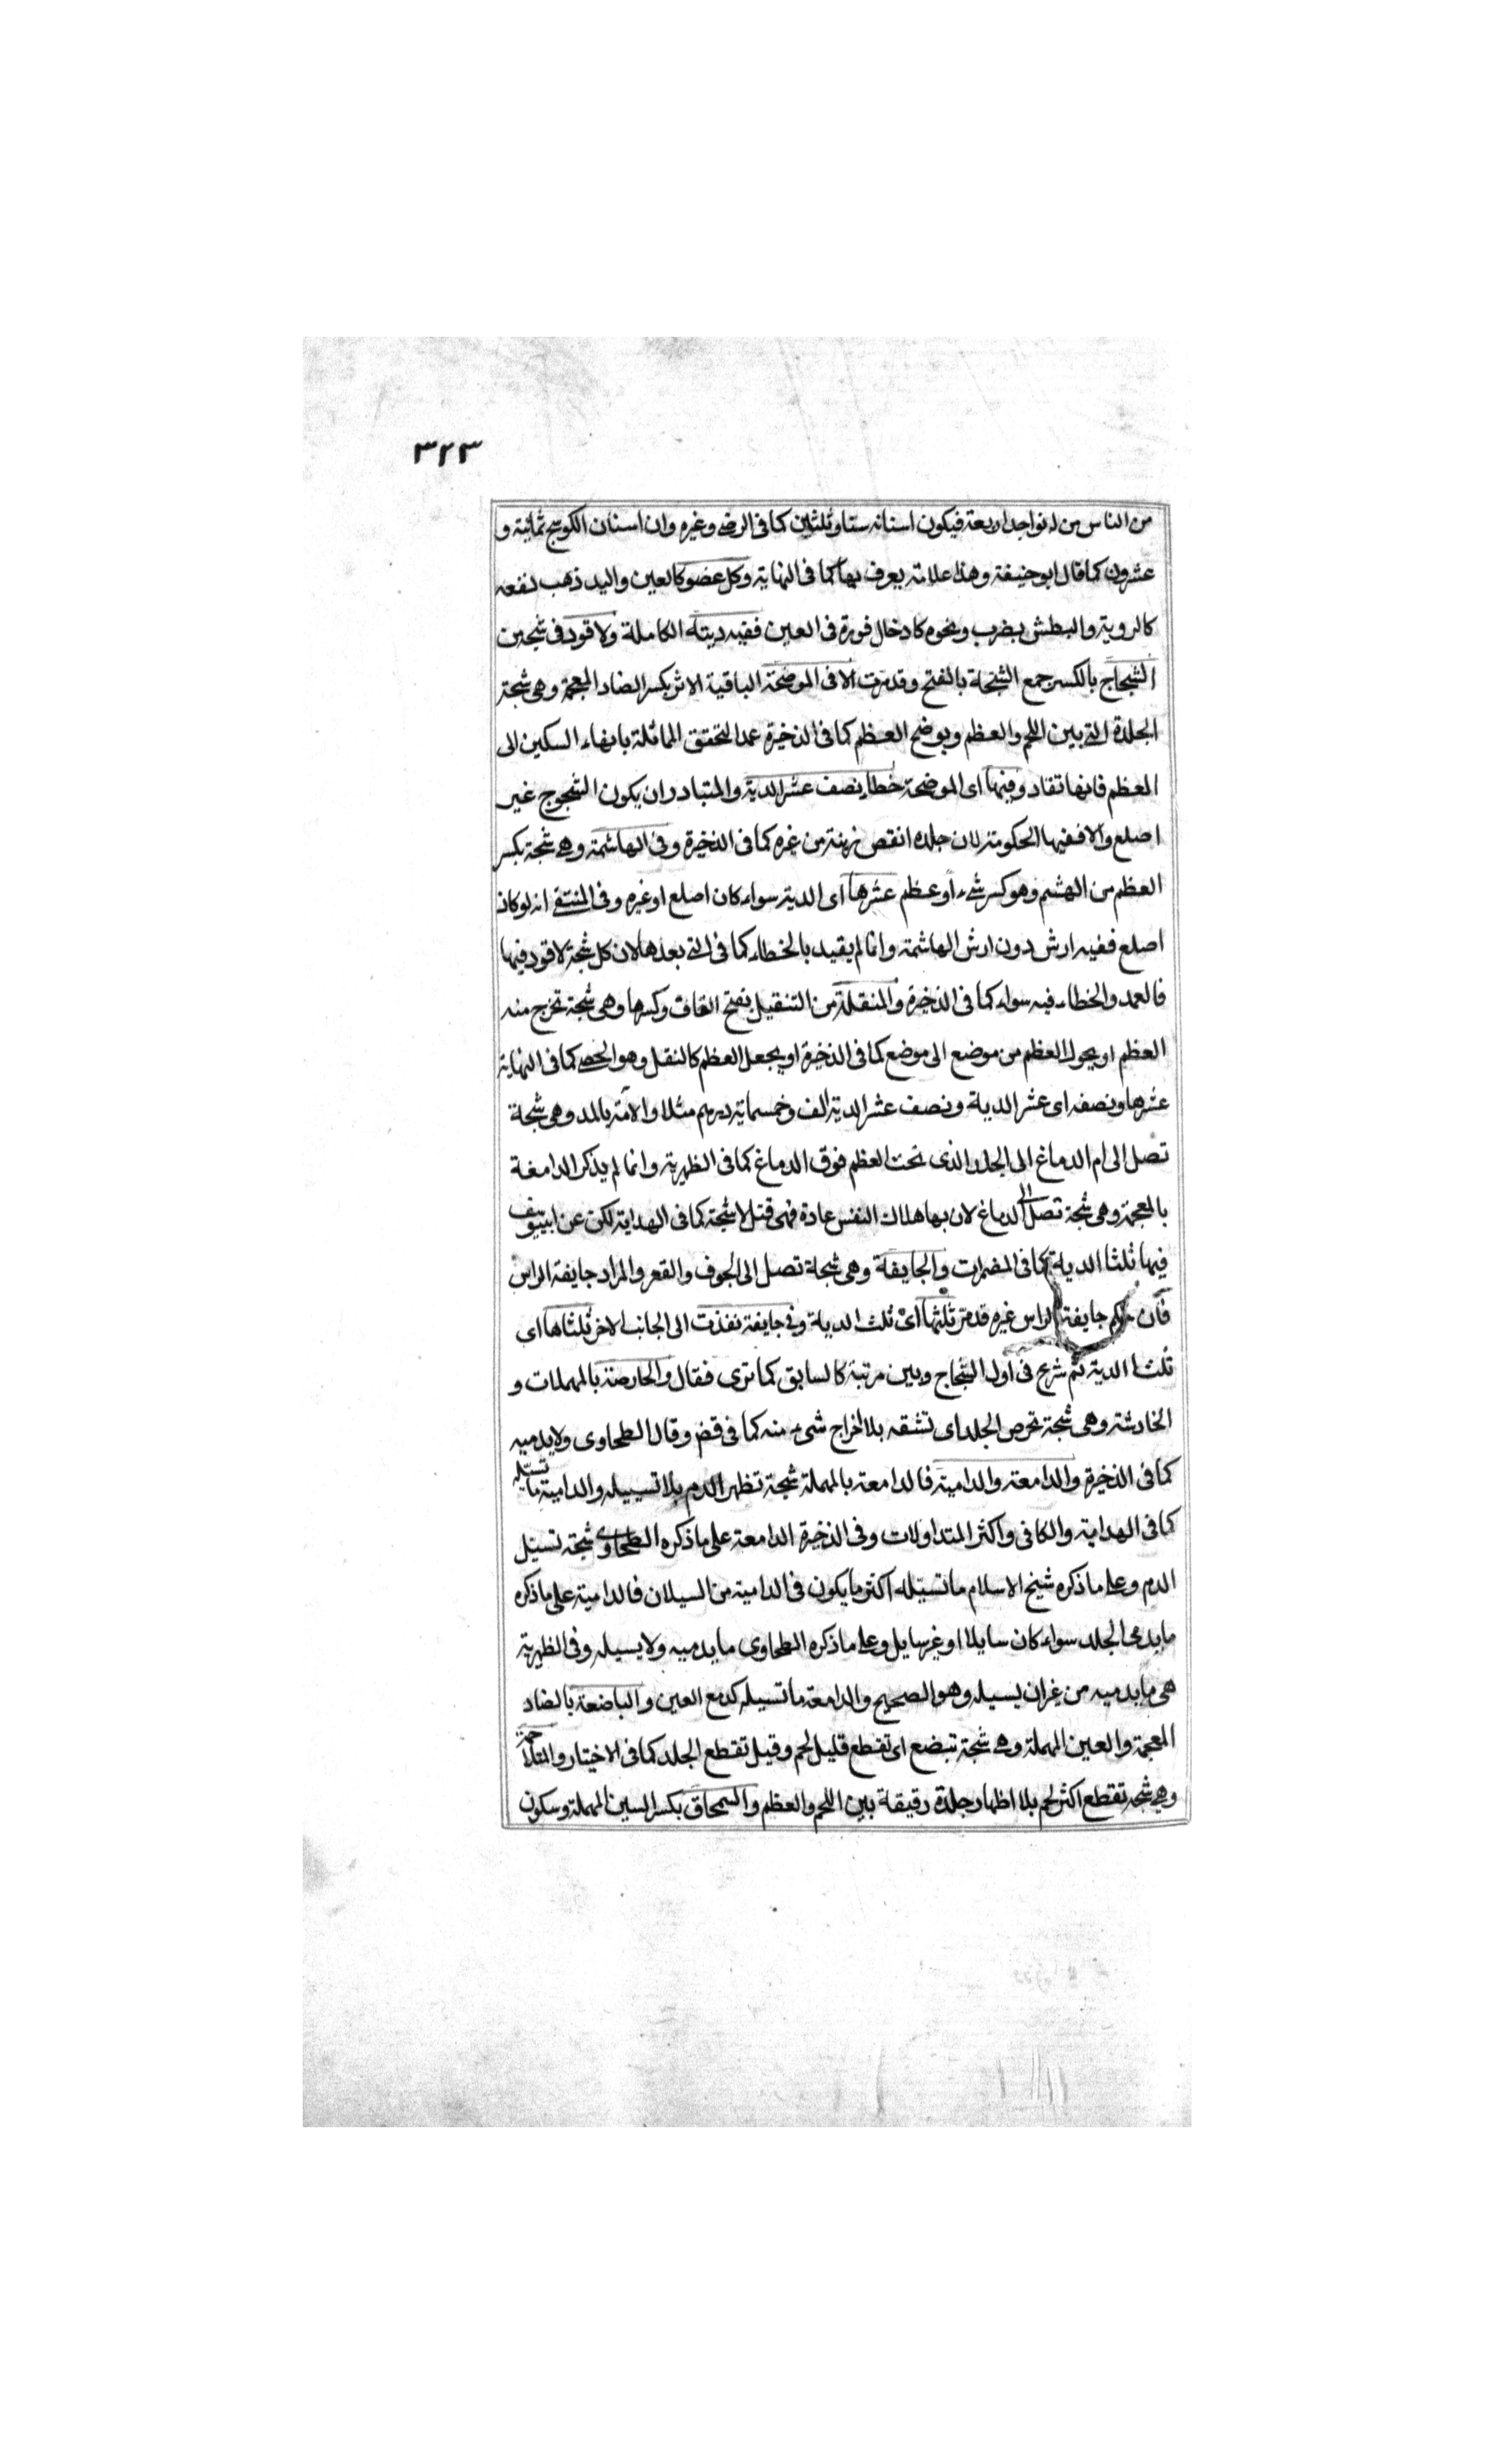 ٣٢٣
من الناس من له نواجد اربعة فيكون اسنانه ستا وثلثين كما فى الرضى وغيره وان اسنان الكوسج ثمانية و
عشرون كما قال ابو حنيفة وهذا علامة يعرف بها كما فى النهاية وكل عضو كالعين واليد ذهب نفعه
كالروية والبطش بضرب ونحوه كادخال فورة فى العين ففيه ديته الكاملة ولا قود فى شجة من
الشجاج بالكسر جمع الشجة بالفتح وقد مرت الا فى الموضحة الباقية الاثر بكسر الضاد المعجمة وهى شجة
الجلدة التى بين اللحم والعظم ويوضح العظم كما فى الذخيرة عمدا لتحقق المماثلة بانهاء السكين الى
العظم فانها تقاد وفيها اى الموضحة خطاء نصف عشر الدية والمتبادر ان يكون الشجوج غير
اصلع والا ففيها الحكومة لان جلده انقص زينة من غيره كما فى الذخيرة وفى الهاشمة وهى شجة بكسر
العظم من الهشم وهو كسر شىء او عظم عشرها اى الدية سواء كان اصلع او غيره وفى المنتقى انه لو كان
اصلع ففيه ارش دون ارش الهاشمة وانما لم يقيد بالخطاء كما فى التى بعدها لان كل شجة لا قود فيها
فالعمد والخطاء فيه سواء كما فى الذخيرة والمنقلة من التنقيل بفتح القاف وكسرها وهى شجة تخرج منه
العظم او يحول العظم من موضع الى موضع كما فى الذخيرة او يجعل العظم كالنقل وهو الحصى كما فى النهاية
عشرها ونصفه اى عشر الدية ونصف عشر الدية الف وخمسماية درهم مثلا والآمة بالمد وهى شجة
تصل الى ام الدماغ الى الجلد الذى تحت العظم فوق الدماغ كما فى الظهيرية وانما لم يذكر الدامغة
بالمعجمة وهى شجة تصل الى الدماغ لان بها هلاك النفس عادة فهى قتل لا شجة كما فى الهداية لكن عن ابى يوسف
فيها ثلثا الدية كما فى المضمرات والجايفة وهى شجة تصل الى الجوف والقعر والمراد جايفة الراس
فان حكم جايفة الراس غيره قد مر ثلثها اى ثلث الدية وفى جايفة نفذت الى الجانب الاخر ثلثاها اى
ثلثا الدية ثم شرح فى اول الشجاج وبين مرتبة كالسابق كما ترى فقال والحارصة بالمهملات و
الخادشة وهى شجة تحرص الجلد اى تشقه بلا اخراج شىء منه كما فى قض وقال الطحاوى ولا يدميه
كما فى الذخيرة والدامعة والدامية فالدامعة بالمهملة شجة تظهر الدم بلا تسييله والدامية ما تسيله
كما فى الهداية والكافى واكثر المتداولات وفى الذخيرة الدامعة على ما ذكره الطحاوى شجة تسيل
الدم وعلى ما ذكره شيخ الاسلام ما تسيله اكثر ما يكون فى الدامية من السيلان فالدامية على ما ذكره
ما يدمى الجلد سواء كان سايلا او غير سايل وعلى ما ذكره الطحاوى ما يدميه ولا يسيله وفى الظهيرية
هى ما يدميه من غير ان يسيله وهو الصحيح والدامعة ما تسيله كدمع العين والباضعة بالضاد
المعجمة والعين المهملة وهى شجة تبضع اى تقطع قليل لحم وقيل تقطع الجلد كما فى الاختيار والمتلاحمة
وهى شجة تقطع اكثر لحم بلا اظهار جلدة رقيقة بين اللحم والعظم والسمحاق بكسر السين المهملة وسكون